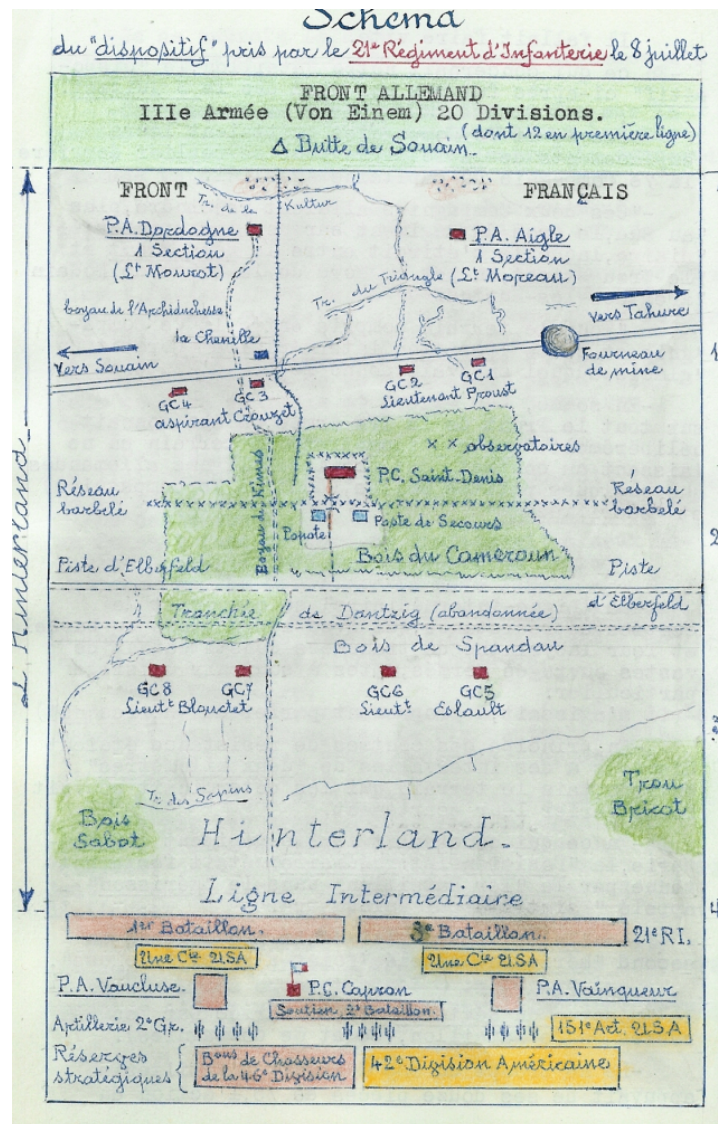 Schema
du "dispositif" pris par le 21e Régiment d'Infanterie le 8 juillet
FRONT ALLEMAND
IIIe Armée (Von Einem) 20 Divisions.
(dont 12 en première ligne)
Δ Butte de Souain.
FRONT
FRANÇAIS
Tr. de la Kultur
P.A. Dordogne
1 Section
(Lt Mourot)
P.A. Aigle
1 Section
(Lt Moreau)
Tr. du Triangle
boyau de l'Archiduchesse
la Chenille
vers Souain
vers Tahure
Fourneau
de mine
1
GC4
GC3
aspirant Crouzet
GC2
GC1
Lieutenant Proust
x x observatoires
P.C. Saint-Denis
Réseau
barbelé
Réseau
barbelé
Boyau du Kinus
Popote
Poste de Secours
2
Piste d'Elberfeld
Bois du Cameroun
Piste
d'Elberfeld
Tranchée de Dantzig (abandonnée)
Bois de Spandau
GC8
GC7
Lieutt Blondet
GC6
GC5
Lieutt Eslault
L'Hinterland
3
Tr. des Sapins
Bois
Sabot
Trou
Bricot
Hinterland.
Ligne Intermédiaire
4
1er Bataillon.
3e Bataillon.
21e RI.
Une Cie USA
Une Cie USA
P.A. Vaucluse.
P.C. Capron
P.A. Vainqueur
Soutien 2e Bataillon.
Artillerie 2e Gr.
151e Art. U.S.A
Réserves
stratégiques
Bons de Chasseurs
de la 46e Division
42e Division Américaine